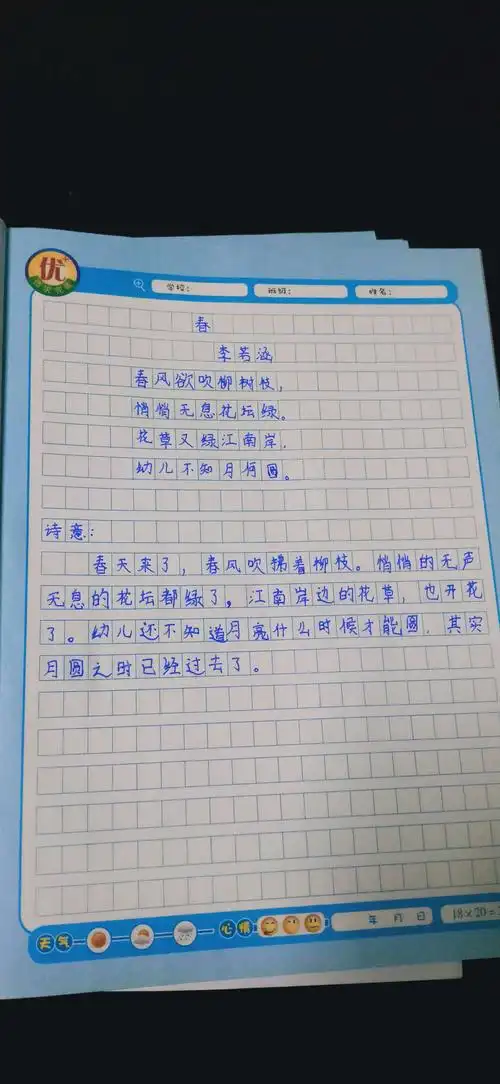 优+
学校：
班级：
姓名：
春
李若涵
春风欲吹柳树枝，
悄悄无息花坛绿。
花草又绿江南岸.
幼儿不知月何圆。
诗意：
春天来了，春风吹拂着柳枝。悄悄的无声
无息的花坛都绿了，江南岸边的花草，也开花
了。幼儿还不知道月亮什么时候才能圆.其实
月圆之时已经过去了。
天气
心情
年 月 日
18×20=